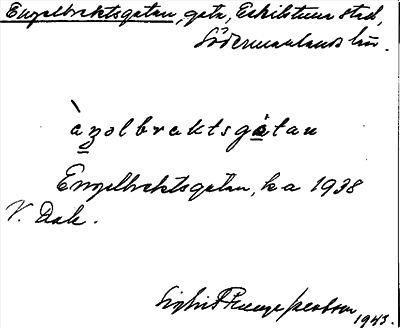 Engelbrektsgatan, gata, Eskilstuna stad,
Södermanlands län.
àŋəlbrektsgàtan
Engelbrektsgatan, ka 1938
V. Dal.
Sigfrid Runge Jacobson
1943.